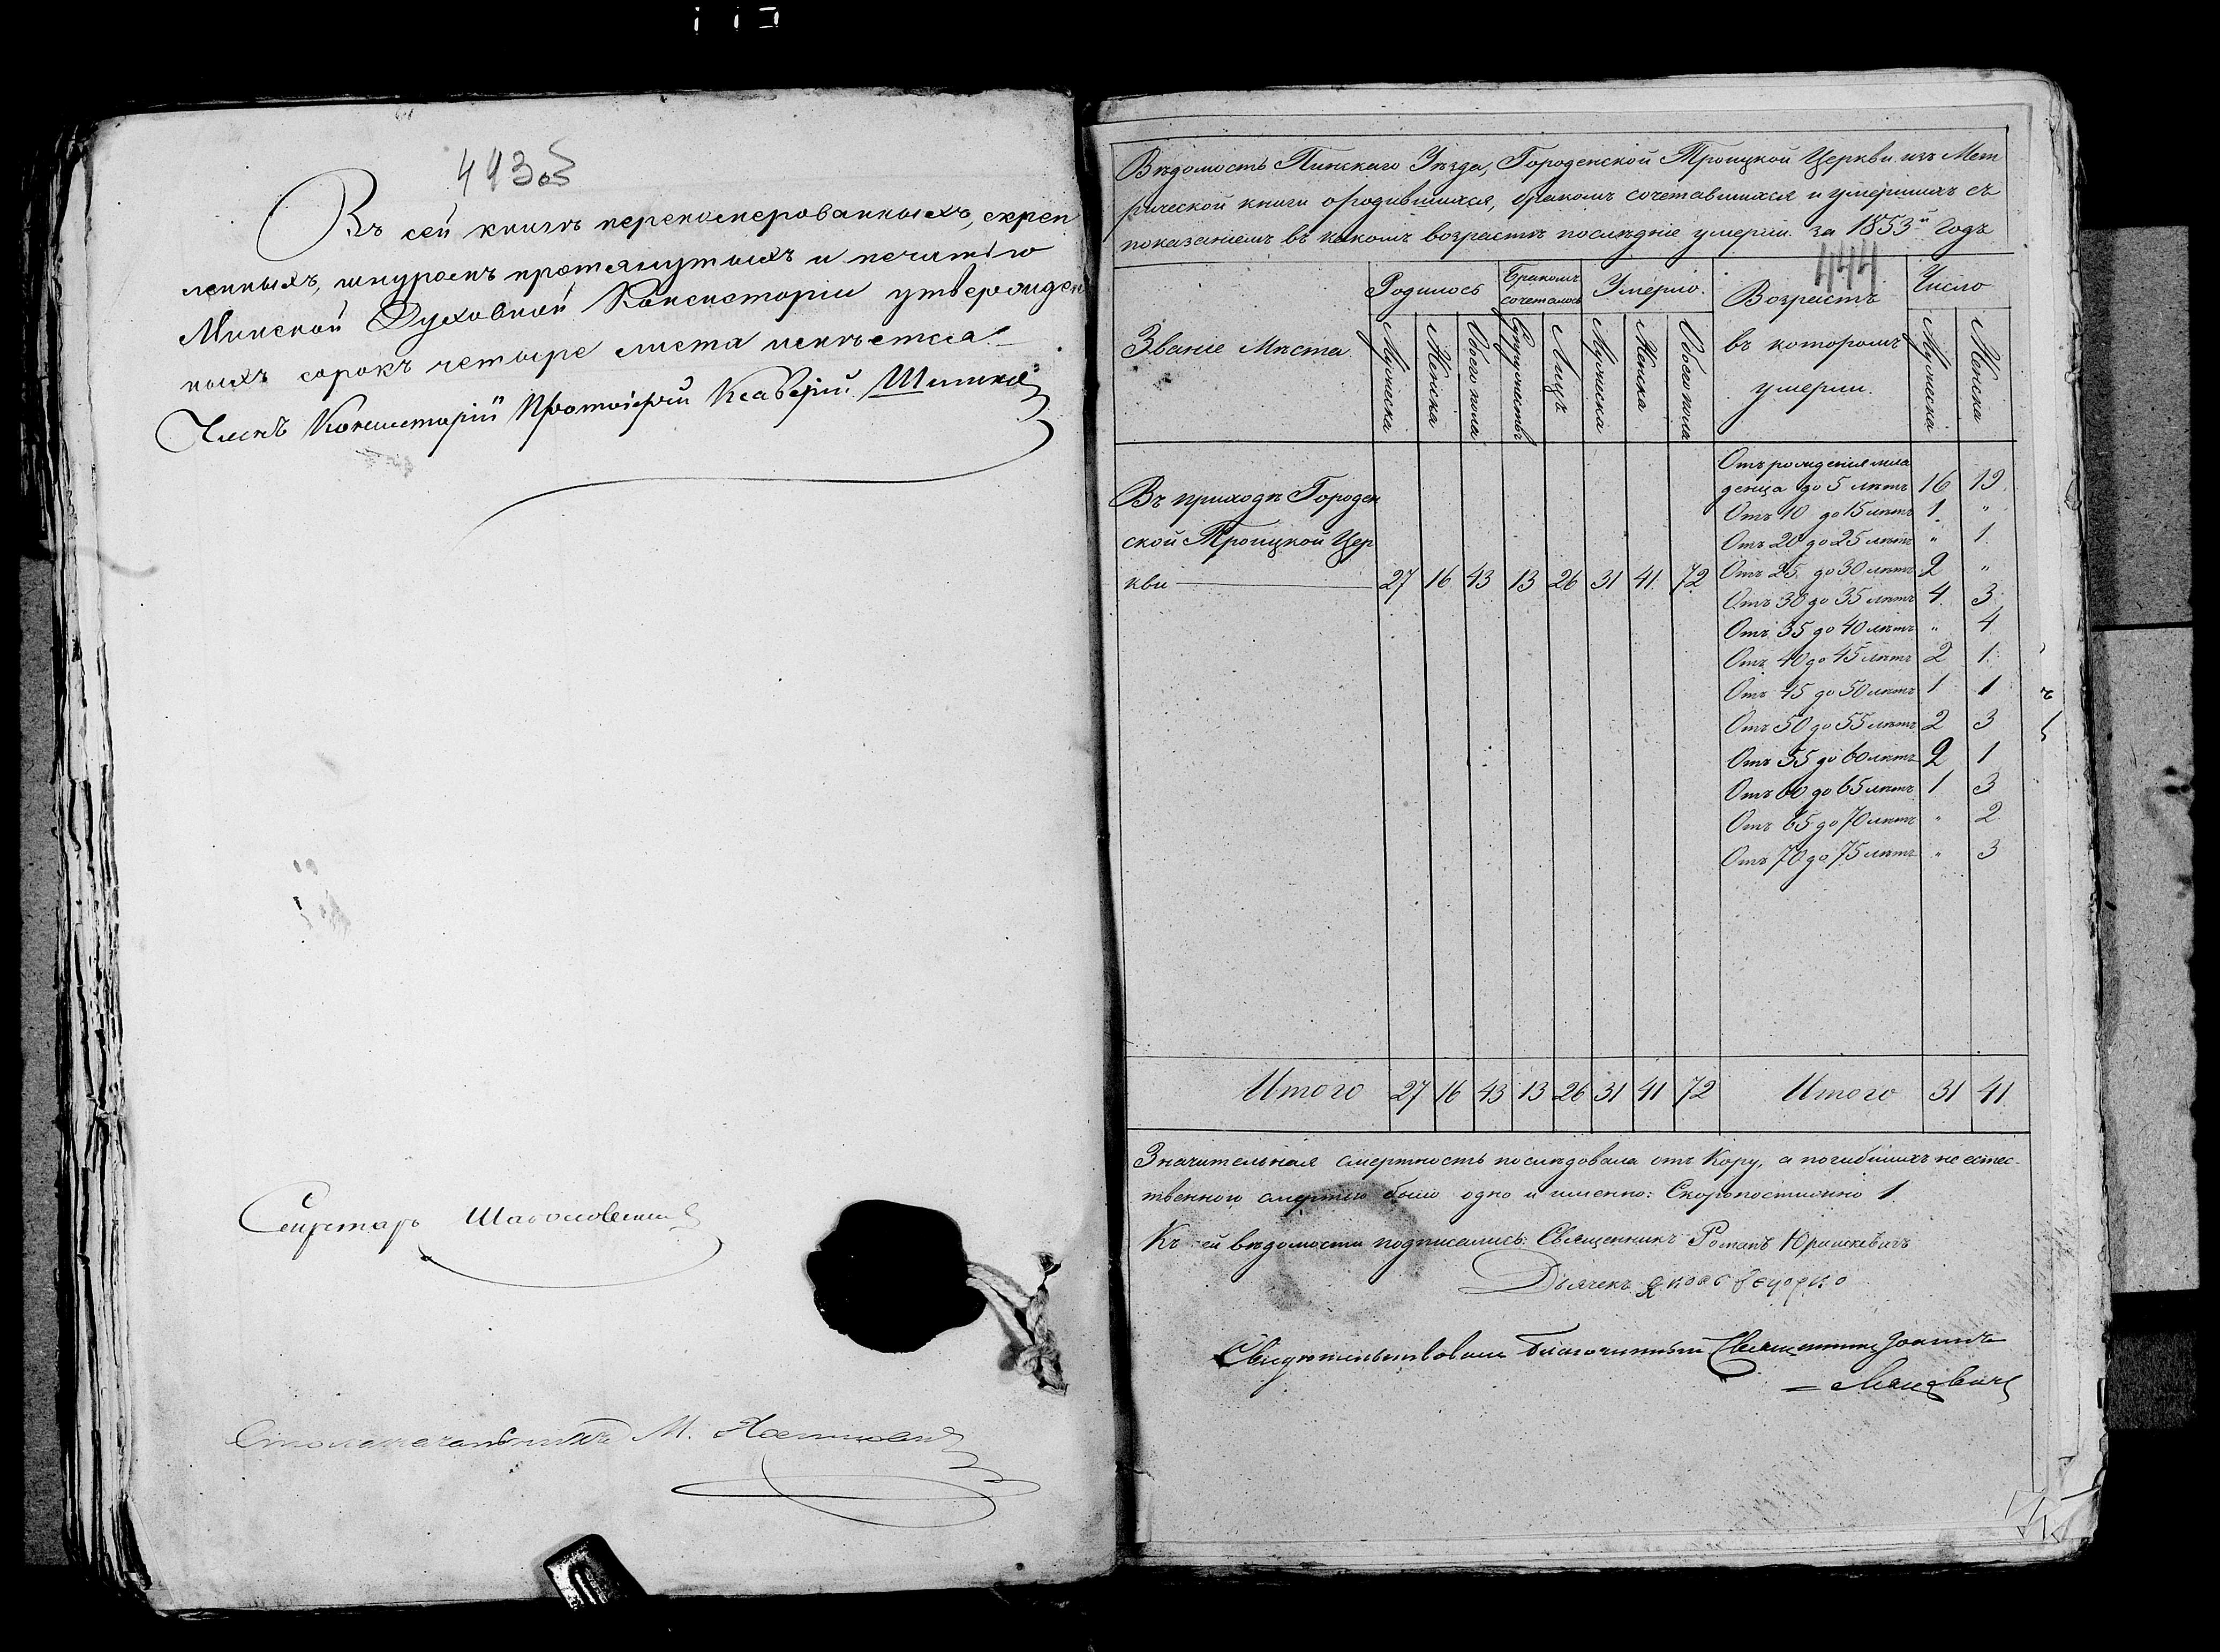 443об
Въ сей книгѣ перенумерованныхъ, скреп
ленныхъ, шнуромъ протянутыхъ и печатію
Минской Духовной Консисторіи утвержден
ныхъ сорокъ четыре листа имѣется.
Членъ Консисторіи Протоіерей Ксаверій
Секретарь
Столоначальникъ М.
Вѣдомость Пинскаго Уѣзда, Городенской Троицкой Церкви изъ Мет
рической книги о родившихся, бракомъ сочетавшихся и умершихъ съ
показаніемъ въ какомъ возрастѣ послѣдніе умерли за 1853й годъ
444
Званіе Мѣста
Родилось
Бракомъ сочеталось
Умерло.
Возрастъ въ которомъ умерли.
Число
Мужеска
Женска
Обоего пола
Супружествъ
Лицъ
Мужеска
Женска
Обоего пола
Мужеска
Женска
Въ приходѣ Городен
ской Троицкой Цер
кви 27 16 43 13 26 31 41 72
Отъ рожденія мла
денца до 5 лѣтъ 16 19
Отъ 10 до 15 лѣтъ 1 "
Отъ 20 до 25 лѣтъ " 1
Отъ 25 до 30 лѣтъ 2 "
Отъ 30 до 35 лѣтъ 4 3
Отъ 35 до 40 лѣтъ " 4
Отъ 40 до 45 лѣтъ 2 1
Отъ 45 до 50 лѣтъ 1 1
Отъ 50 до 55 лѣтъ 2 3
Отъ 55 до 60 лѣтъ 2 1
Отъ 60 до 65 лѣтъ 1 3
Отъ 65 до 70 лѣтъ " 2
Отъ 70 до 75 лѣтъ " 3
Итого 27 16 43 13 26 31 41 72 Итого 31 41
Значительная смертность послѣдовала отъ Кору, а погибшихъ не естес-
твенною смертію было одно и именно: Скоропостижно 1.
Къ сей вѣдомости подписались: Священникъ Романъ Юрашкевичъ
Дьячекъ
Свидѣтельствовалъ Благочинный Священникъ Іоаннъ